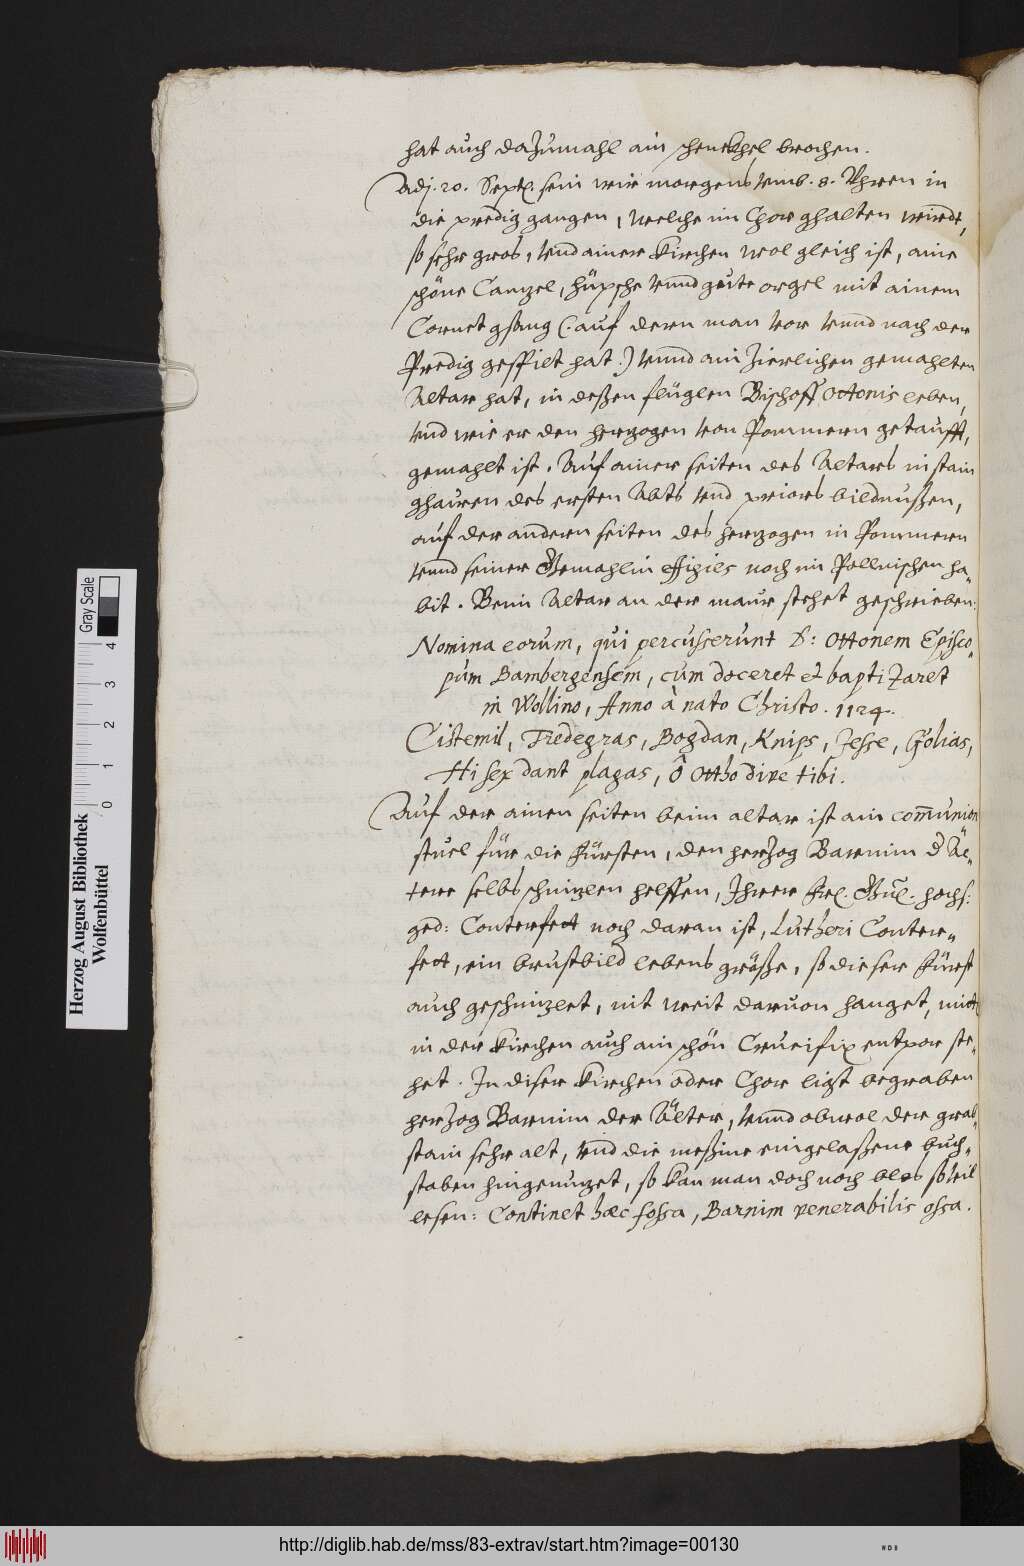 hat auch dazumahl ain schenckhel brochen.
Adj. 20. Sept. sein wir morgens umb. 8. Uhren in
die predig gangen, welche im Chor ghalten wirdt,
so sehr gros, und ainer kirchen wol gleich ist, aine
schöne Canzel, hüpsche unnd guite orgel mit ainem
Cornet gsang (: auf dern man vor unnd nach der
Predig gespilt hat :) unnd ain zierlichen gemahlten
Altar hat, in deßen flüglen Bischoff Ottonis leben,
und wie er den herzogen von Pommern getaufft,
gemahlt ist. Auf ainer seiten des Altars in stain
ghauen des ersten Abts und priors bildnußen,
auf der andern seiten des herzogen in Pommern
unnd seiner Gemahlin effigies noch im Pollnischen ha-
bit. Beim Altar an der maur stehet geschrieben:
Nomina eorum, qui percusserunt S: Ottonem Episco-
pum Bambergensem, cum doceret et baptizaret
in Wollino, Anno à nato Christo. 1124.
Cistemil, Fredegras, Bogdan, Knips, Jesse, Golias,
Hi sex dant plagas, ô Otho dive tibi.
Auf der ainen seiten beim altar ist ain com̄union
stuel für die Fürsten, den herzog Barnim d Äl-
tere selbs schnizlen helffen, Ihrer Frl. Gnl. hochs:
ged: Conterfect noch daran ist, Lutheri Conter-
fect, ein brustbild lebens größe, so dieser Fürst
auch geschnizlet, nit weit daruon hanget, mitt
in der kirchen auch ain schön Crucifix entpor ste-
het. In diser kirchen oder Chor ligt begraben
herzog Barnim der Älter, unnd obwol der grab-
stain sehr alt, und die meßine eingelaßene buch-
staben hingenuzet, so kan man doch noch blos souil
lesen: Continet hæc fossa, Barnim venerabilis ossa.
Herzog August Bibliothek
Wolfenbüttel
Gray Scale
0 1 2 3 4
http://diglib.hab.de/mss/83-extrav/start.htm?image=00130